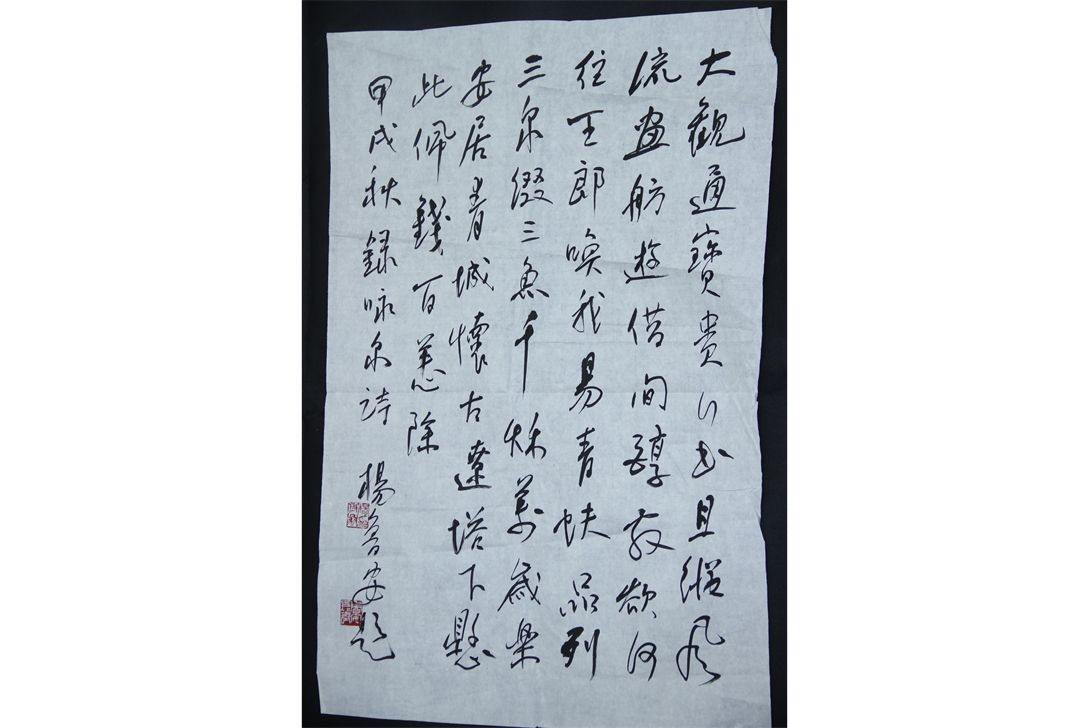 大觀通寶貴行書且縱風
流畫舫遊借问醇交欲何
往王郎喚我易青蚨品列
三泉綴三魚千秌萬歲樂
安居青城懷古遼塔下懸
此佩錢百恙除
甲戌秋録咏泉詩 楊魯安題